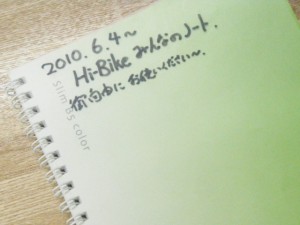 2010.6.4〜
Hi-Bike みんなのノート.
御自由にお使いください〜.
slim B5 color